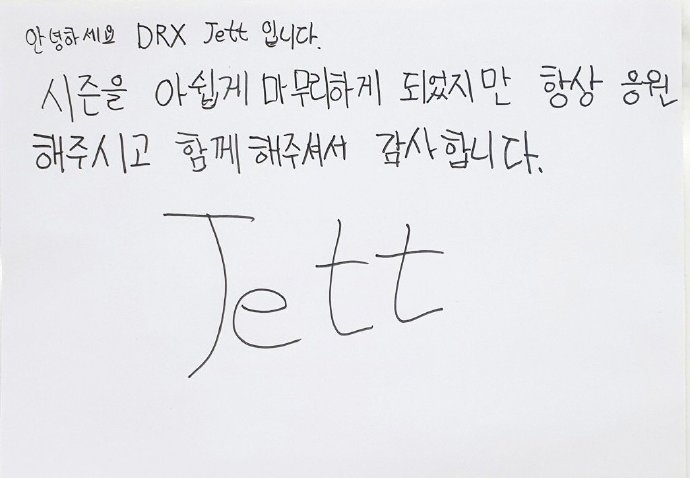 안녕하세요 DRX Jett 입니다.
시즌을 아쉽게 마무리하게 되었지만 항상 응원
해주시고 함께해주셔서 감사합니다.
Jett